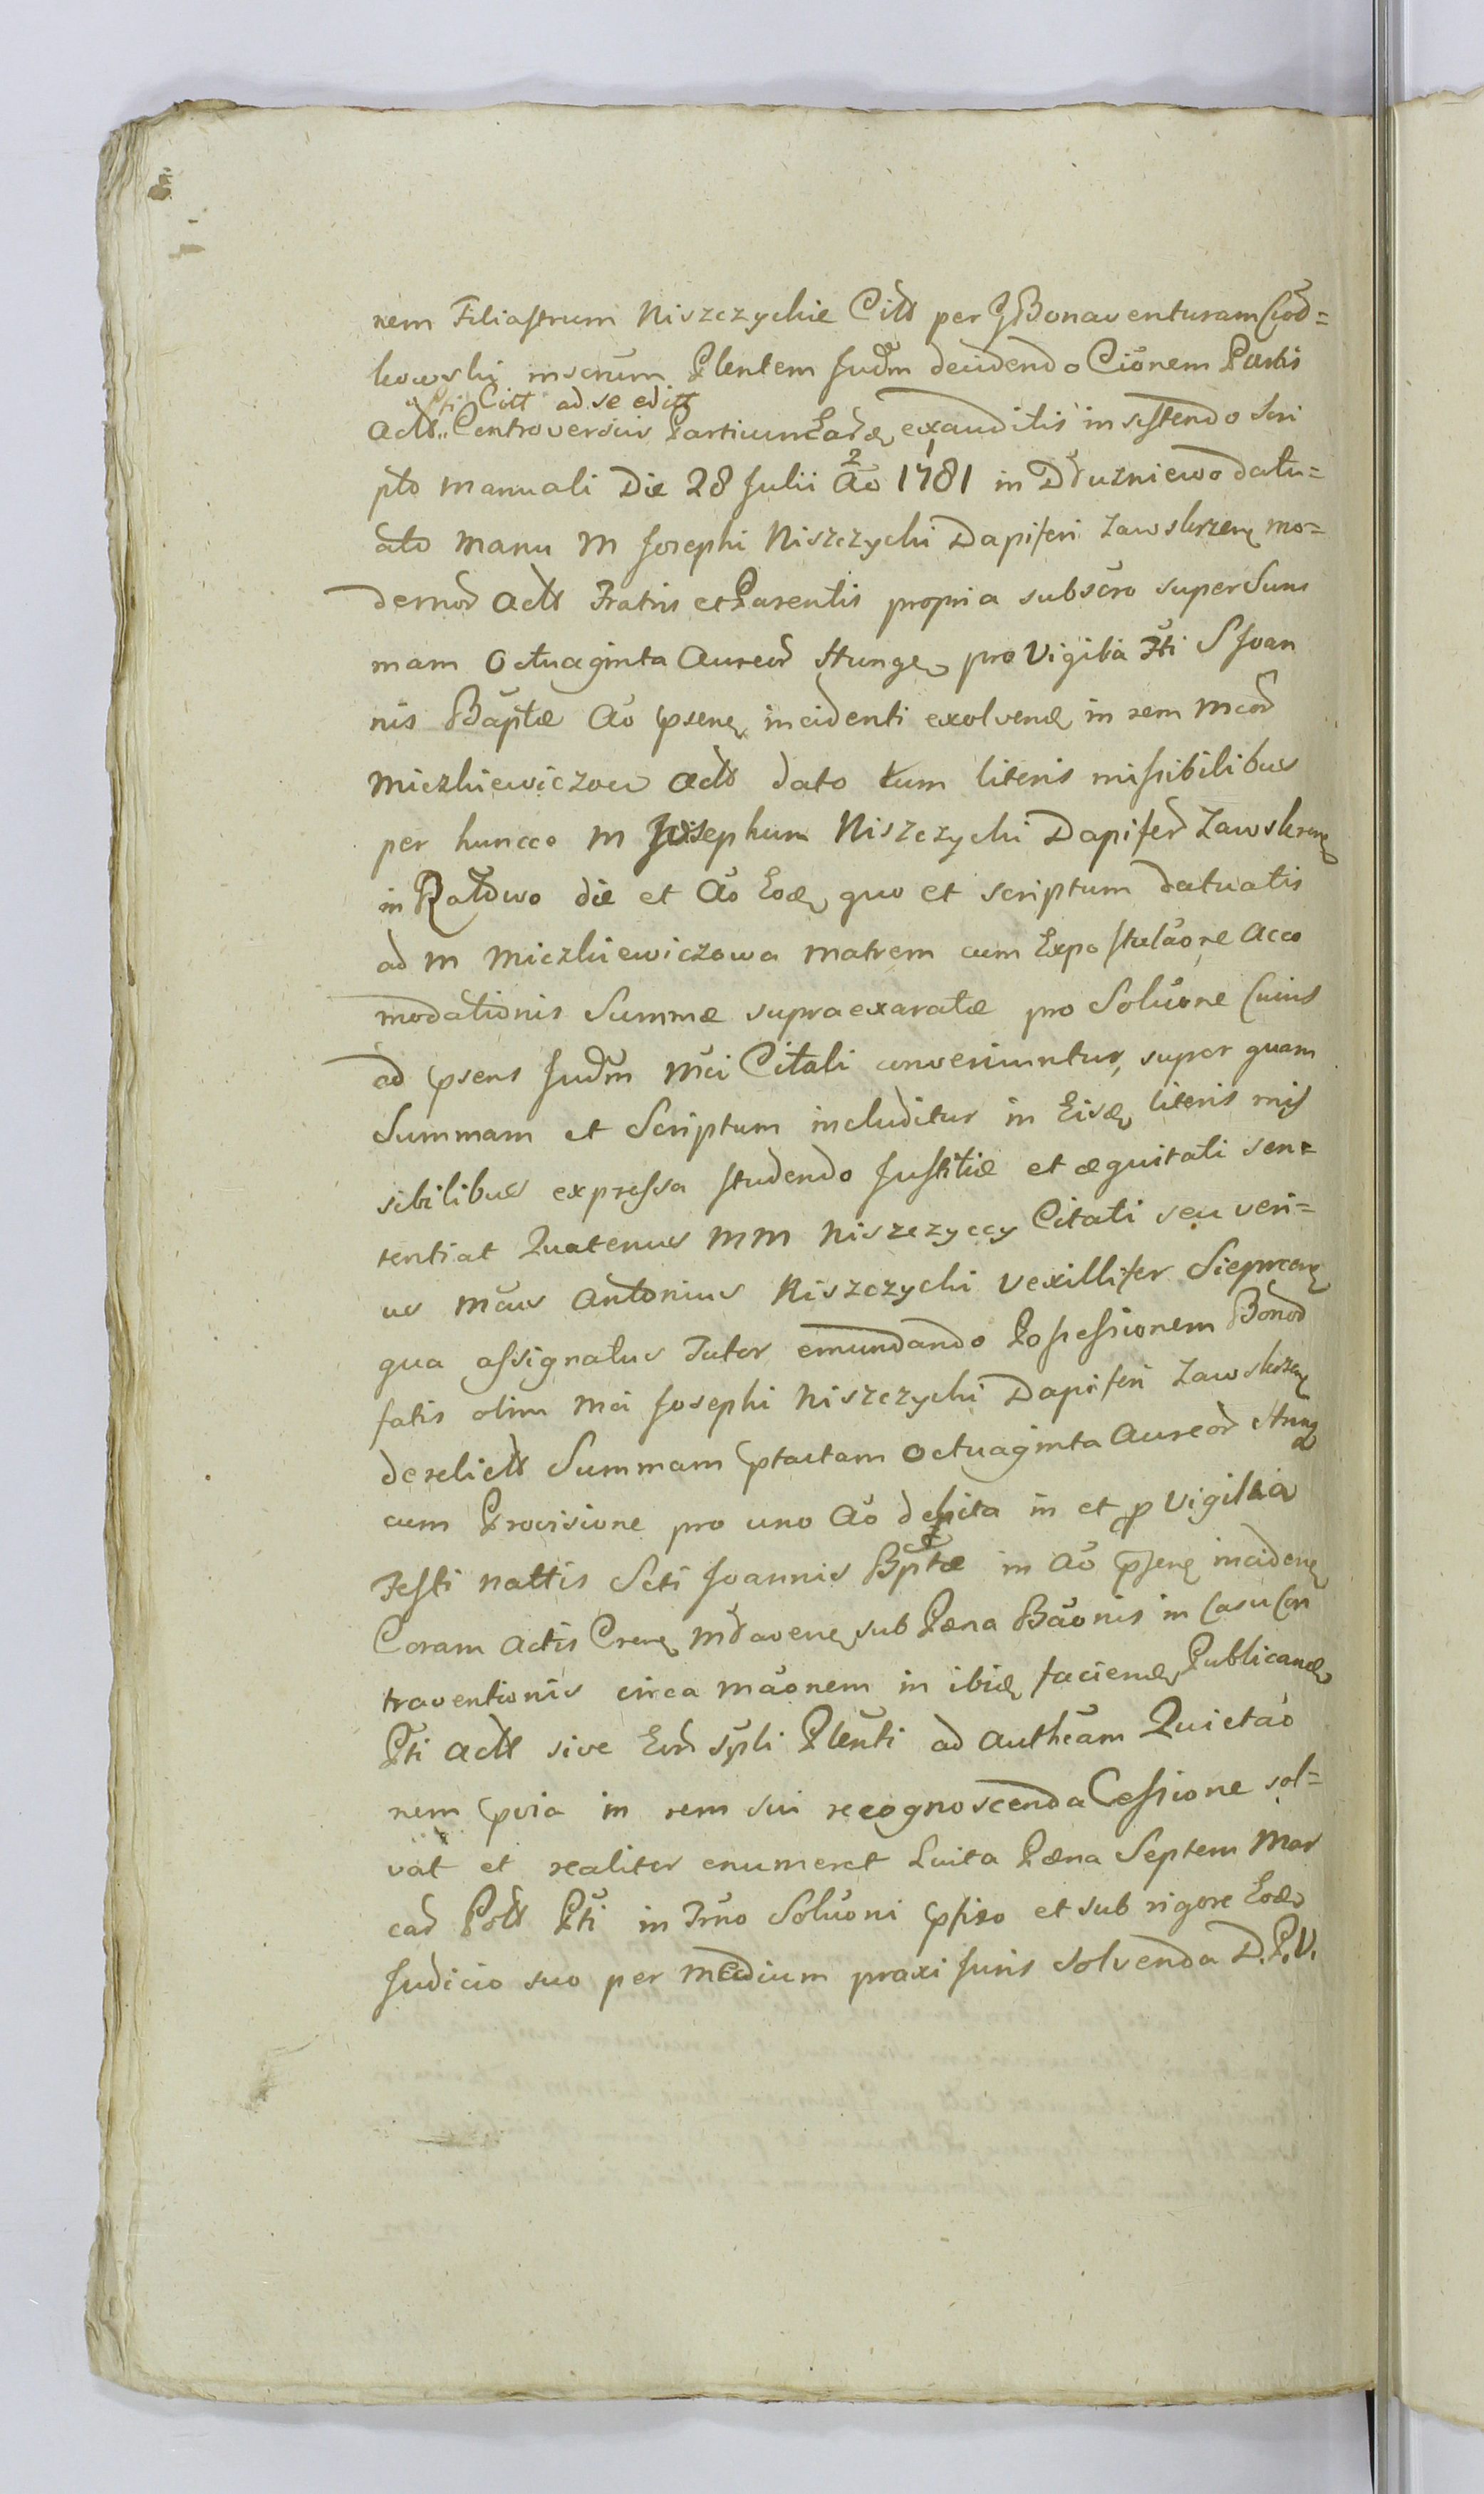 nem Filiastrum Niszczyckie Citt per G Bonaventuram Ciod=
kowski inscrum Plentem Judm decidendo Cionem Partis
Pti Citt ad se editt
Actt Controversiis Partium Earq exauditis insistendo Scri
pto manuali Die 28 Julii Ao 1781 in Druzniewo datu=
ato manu M Josephi Niszczycki Dapiferi Zawskrzen mo=
dernor Actt Fratris et Parentis propria subscro super Sum
mam Octuaginta Aureor Hung pro Vigilia Fti S Joan
nis Baptæ Ao psen incidenti exolven in rem Mcor
Miczkiewiczow Actt dato tum literis missibilibus
per huncce M Josephum Niszczycki Dapifer Zawskrzen
in die et Ao Eoq quo et scriptum datuatis
ad M Miczkiewiczowa matrem cum Expostulaone Acco
modationis Summæ supraexaratæ pro Soluone Cuius
ad psens Judm Mci Citati conveniuntur, super quam
Summam et Scriptum includitur in Eisq literis mis
sibilibus expressa studendo Justitiæ et æquitati sen=
tentiat Quatenus MM Niszczyccy Citati seu veri=
us Mcus Antonius Niszczycki Vexillifer Sieprcen
qua assignatus Tutor emundando Possessionem Bonor
fatis olim Mci Josephi Niszczycki Dapiferi Zawskrzen
derelictt Summam ptactam Octuaginta Aureor Hung
cum Provisione pro uno Ao in et p Vigilia
Festi Nattis Scti Joannis Bptæ in Ao psen inciden
Coram Actis Cren Mraven sub Pæna Baonis in Casu Con
traventionis circa maonem in ibiq facien Publicand
Pti Actt sive Eor spli Plenti ad Autheam Quietao
nem pvia in rem sui recognoscenda Cessione sol=
vat et realiter enumeret Luita Pæna Septem Mar
car Poltt Pti in Trno Soluoni pfixo et sub rigore Eoq
Judicio suo per medium praxi Juris solvenda D.P.V.